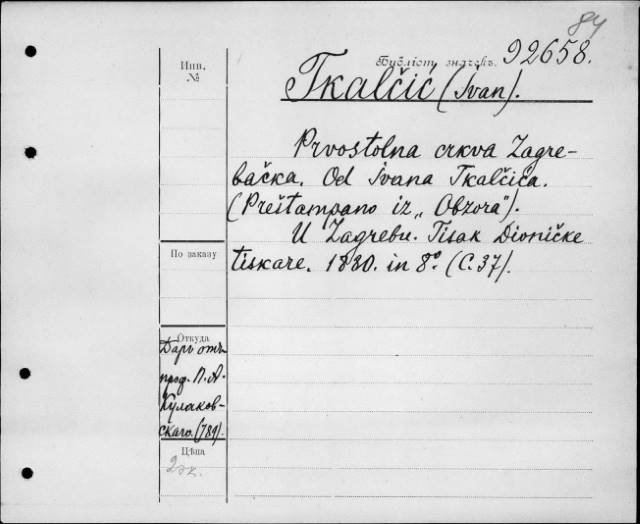 84
Библіот. значекъ. 92658.
Инв.
№
Tkalčić (Ivan).
Prvostolna crkva Zagre-
bačka. Od Ivana Tkalčića.
(Preštampano iz „Obzora").
U Zagrebu. Tisak Dioničke
tiskare. 1880. in 8º. (C. 37).
По заказу
Откуда
Даръ отъ
проф. П. А.
Кулаков-
скаго. (784).
Цѣна
2 эк.